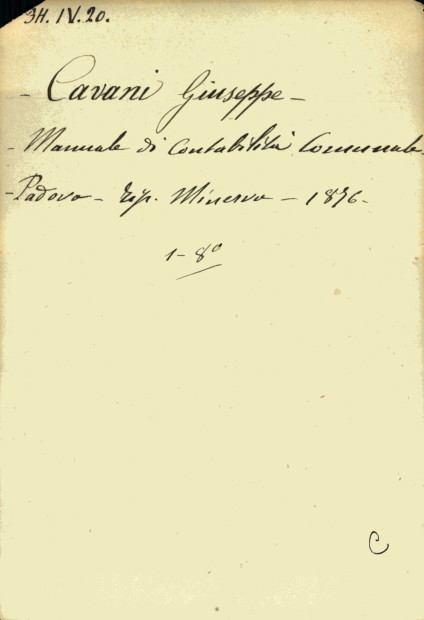 3H.IV.20.
- Cavani Giuseppe -
- Manuale di Contabilità Comunale.
- Padova - Tip. Minerva - 1876.
1 - 8º
C